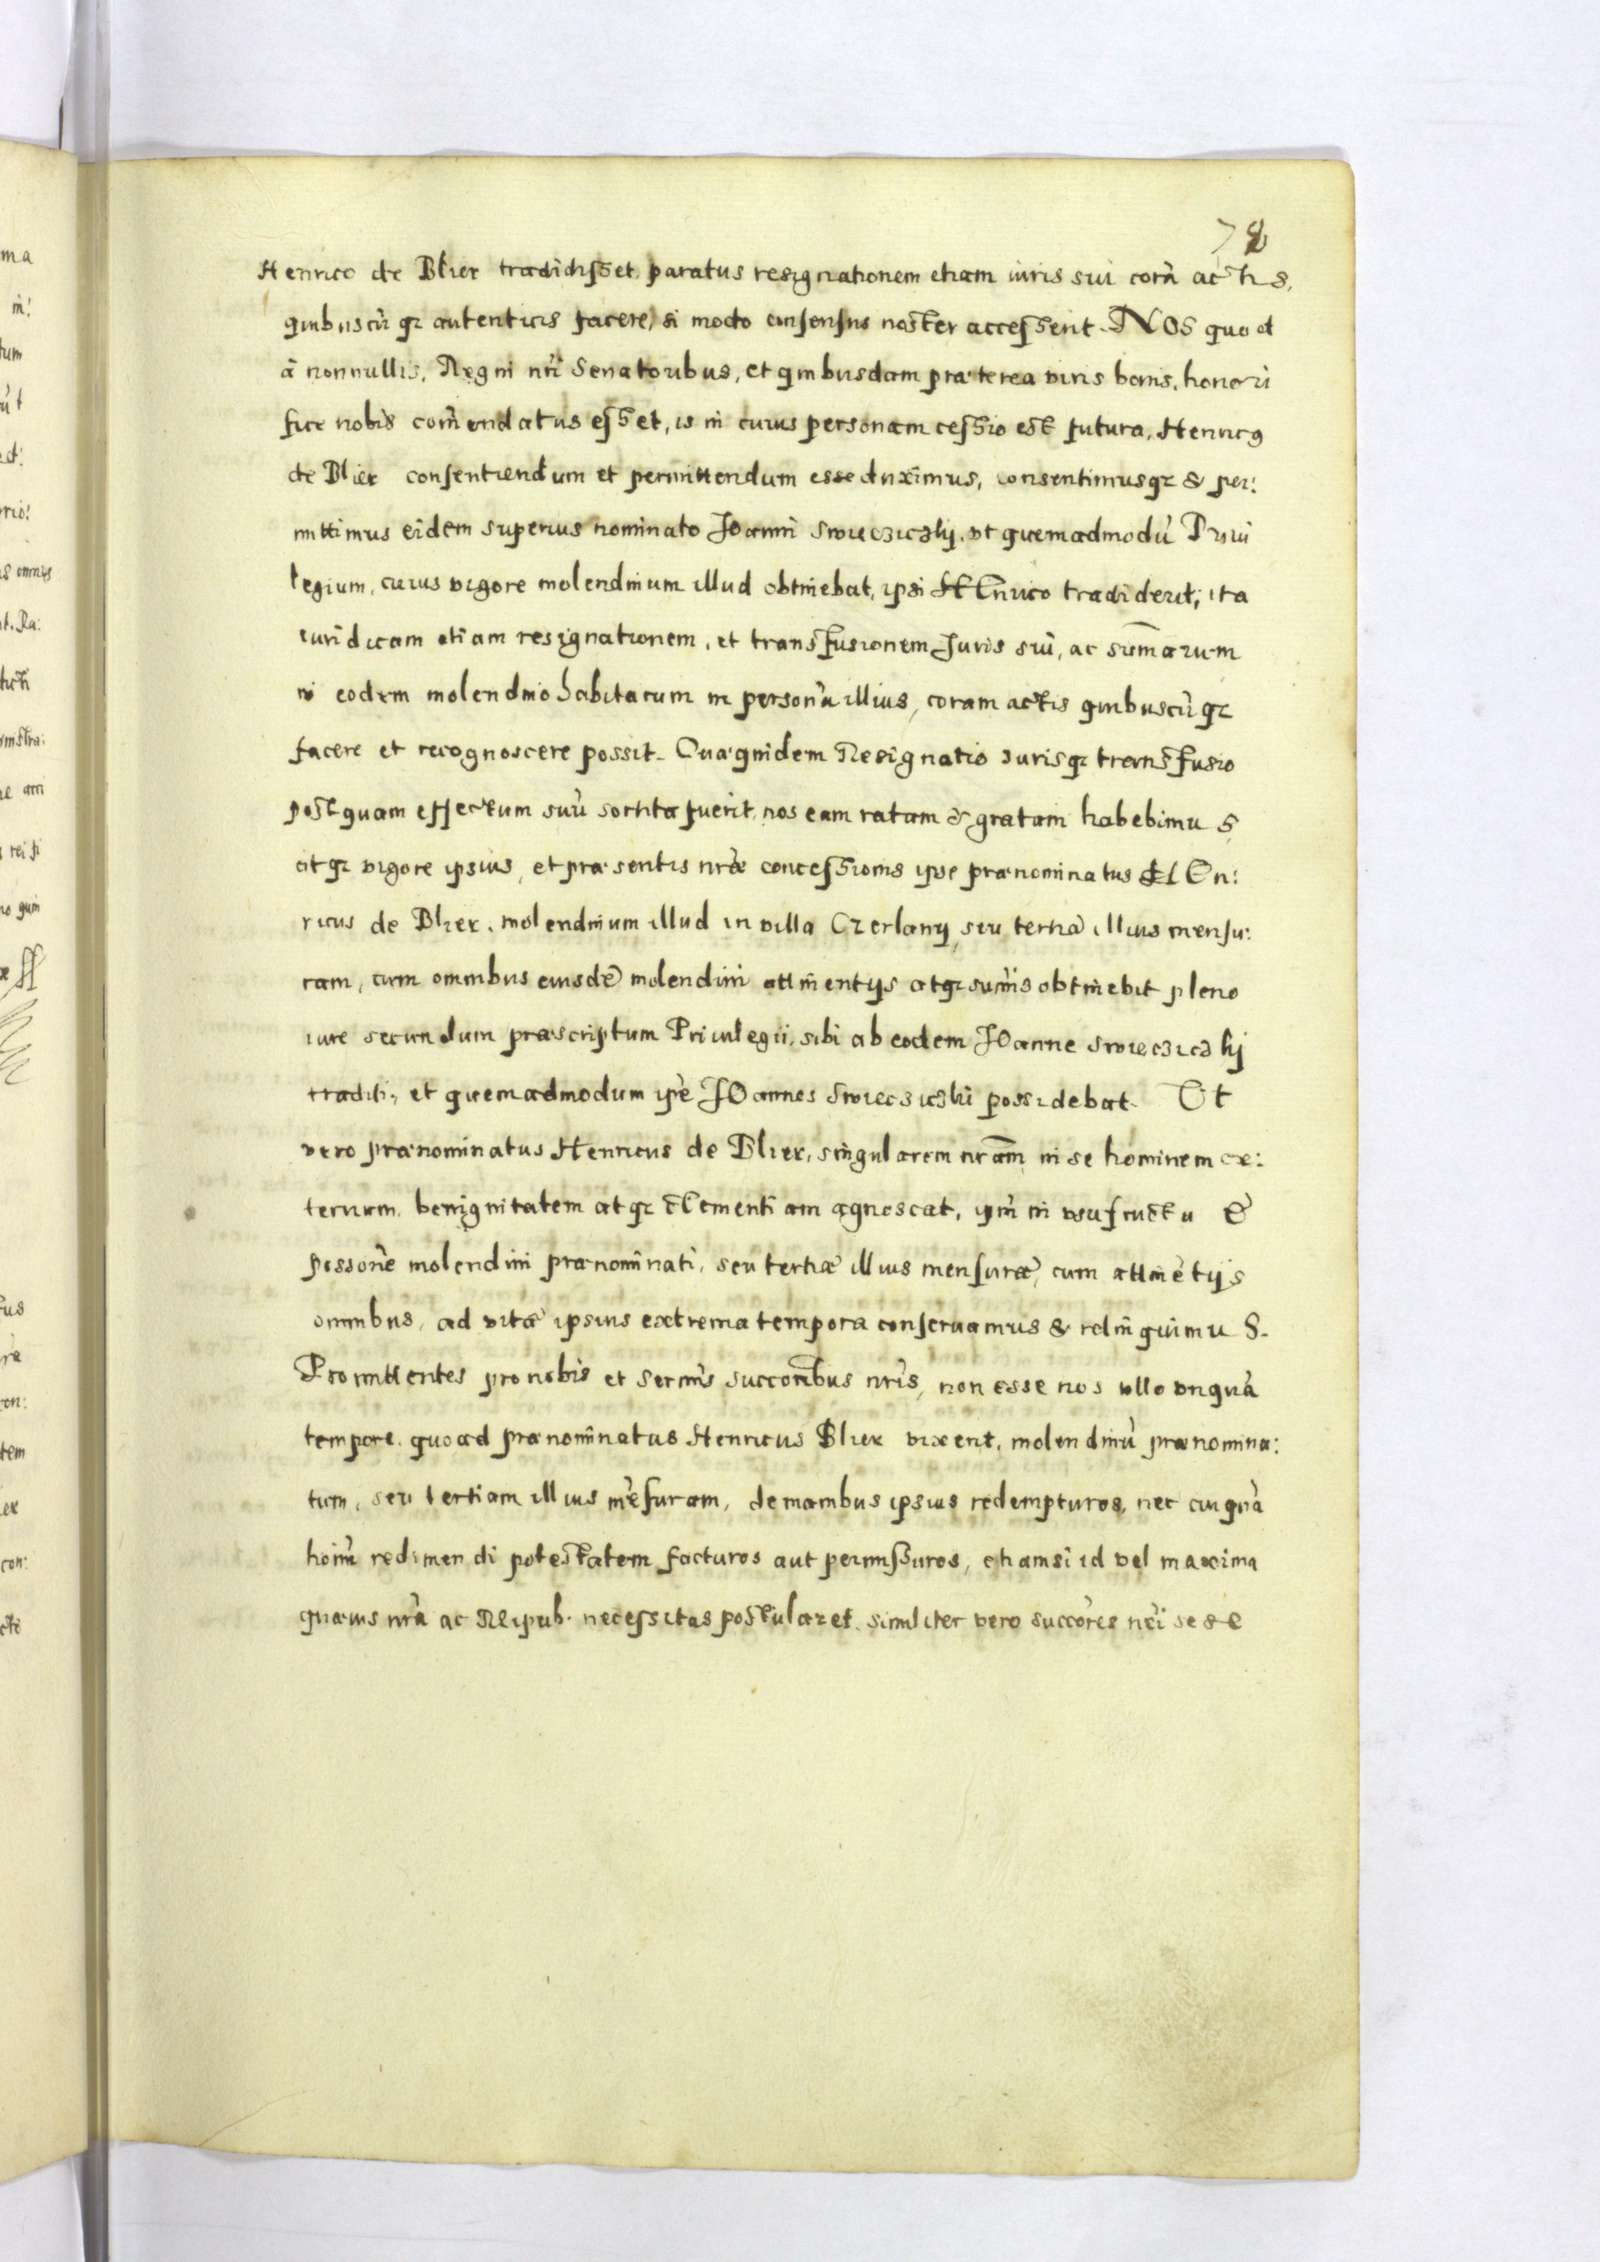 78
Henrico de Blier tradidisset, paratus resignationem etiam iuris sui corã actis,
quibuscũqꝫ autenticis facere, si modo consensus noster accesserit. NOS quod
à nonnullis, Regni nrĩ Senatoribus, et quibusdam præterea viris bonis, honori
fice nobis com̃endatus esset, is in cuius personam cessio est futura, Henricꝰ
de Blier consentiendum et permittendum esse duximus, consentimusqꝫ & per:
mittimus eidem superius nominato Joanni Swiecziczkij, vt quemadmodũ Priui
legium, cuius vigore molendinum illud obtinebat, ipsi HEnrico tradiderit, ita
iuridicam etiam resignationem, et transfusionem Juris sui, ac sum̃arum
in eodem molendino habitarum in personã illius, coram actis quibuscũqꝫ
facere et recognoscere possit. Quæ quidem Resignatio iurisqꝫ transfusio
postquam effectum suũ sortita fuerit, nos eam ratam & gratam habebimus
atqꝫ vigore ipsius, et præsentis nræ̃ concessionis ipse prænominatus HEn:
ricus de Blier, molendinum illud in villa Czerlany, seu tertiã illius mensu:
ram, cum omnibus eiusdẽ molendini attinentijs atqꝫ sum̃is obtinebit pleno
iure secundum præscriptum Priuilegii, sibi ab eodem JOanne Swieczicz kij
traditi, et quemadmodum ipse JOannes Swiecziczki possidebat. Vt
vero prænominatus Henricus de Blier, singularem nrãm in se hominem ex:
ternum, benignitatem atqꝫ clementiam agnoscat, ipm̃ in vsufructu &
possonẽ molendini prænominati, seu tertiæ illius mensuræ, cum attinẽtijs
omnibus, ad vitæ ipsius extrema tempora conseruamus & relinquimus.
Promittentes pro nobis et sermis̃ succoribus nris̃, non esse nos vllo vnquã
tempore, quoad prænominatus Henricus Blier vixerit, molendinũ prænomina:
tum, seu tertiam illius mẽsuram, de manibus ipsius redempturos, nec cuiquã
hoim̃ redimendi potestatem facturos aut permissuros, etiamsi id vel maxima
quæuis nrã ac Reipub. necessitas postularet. Similiter vero succorẽs nrĩ sese